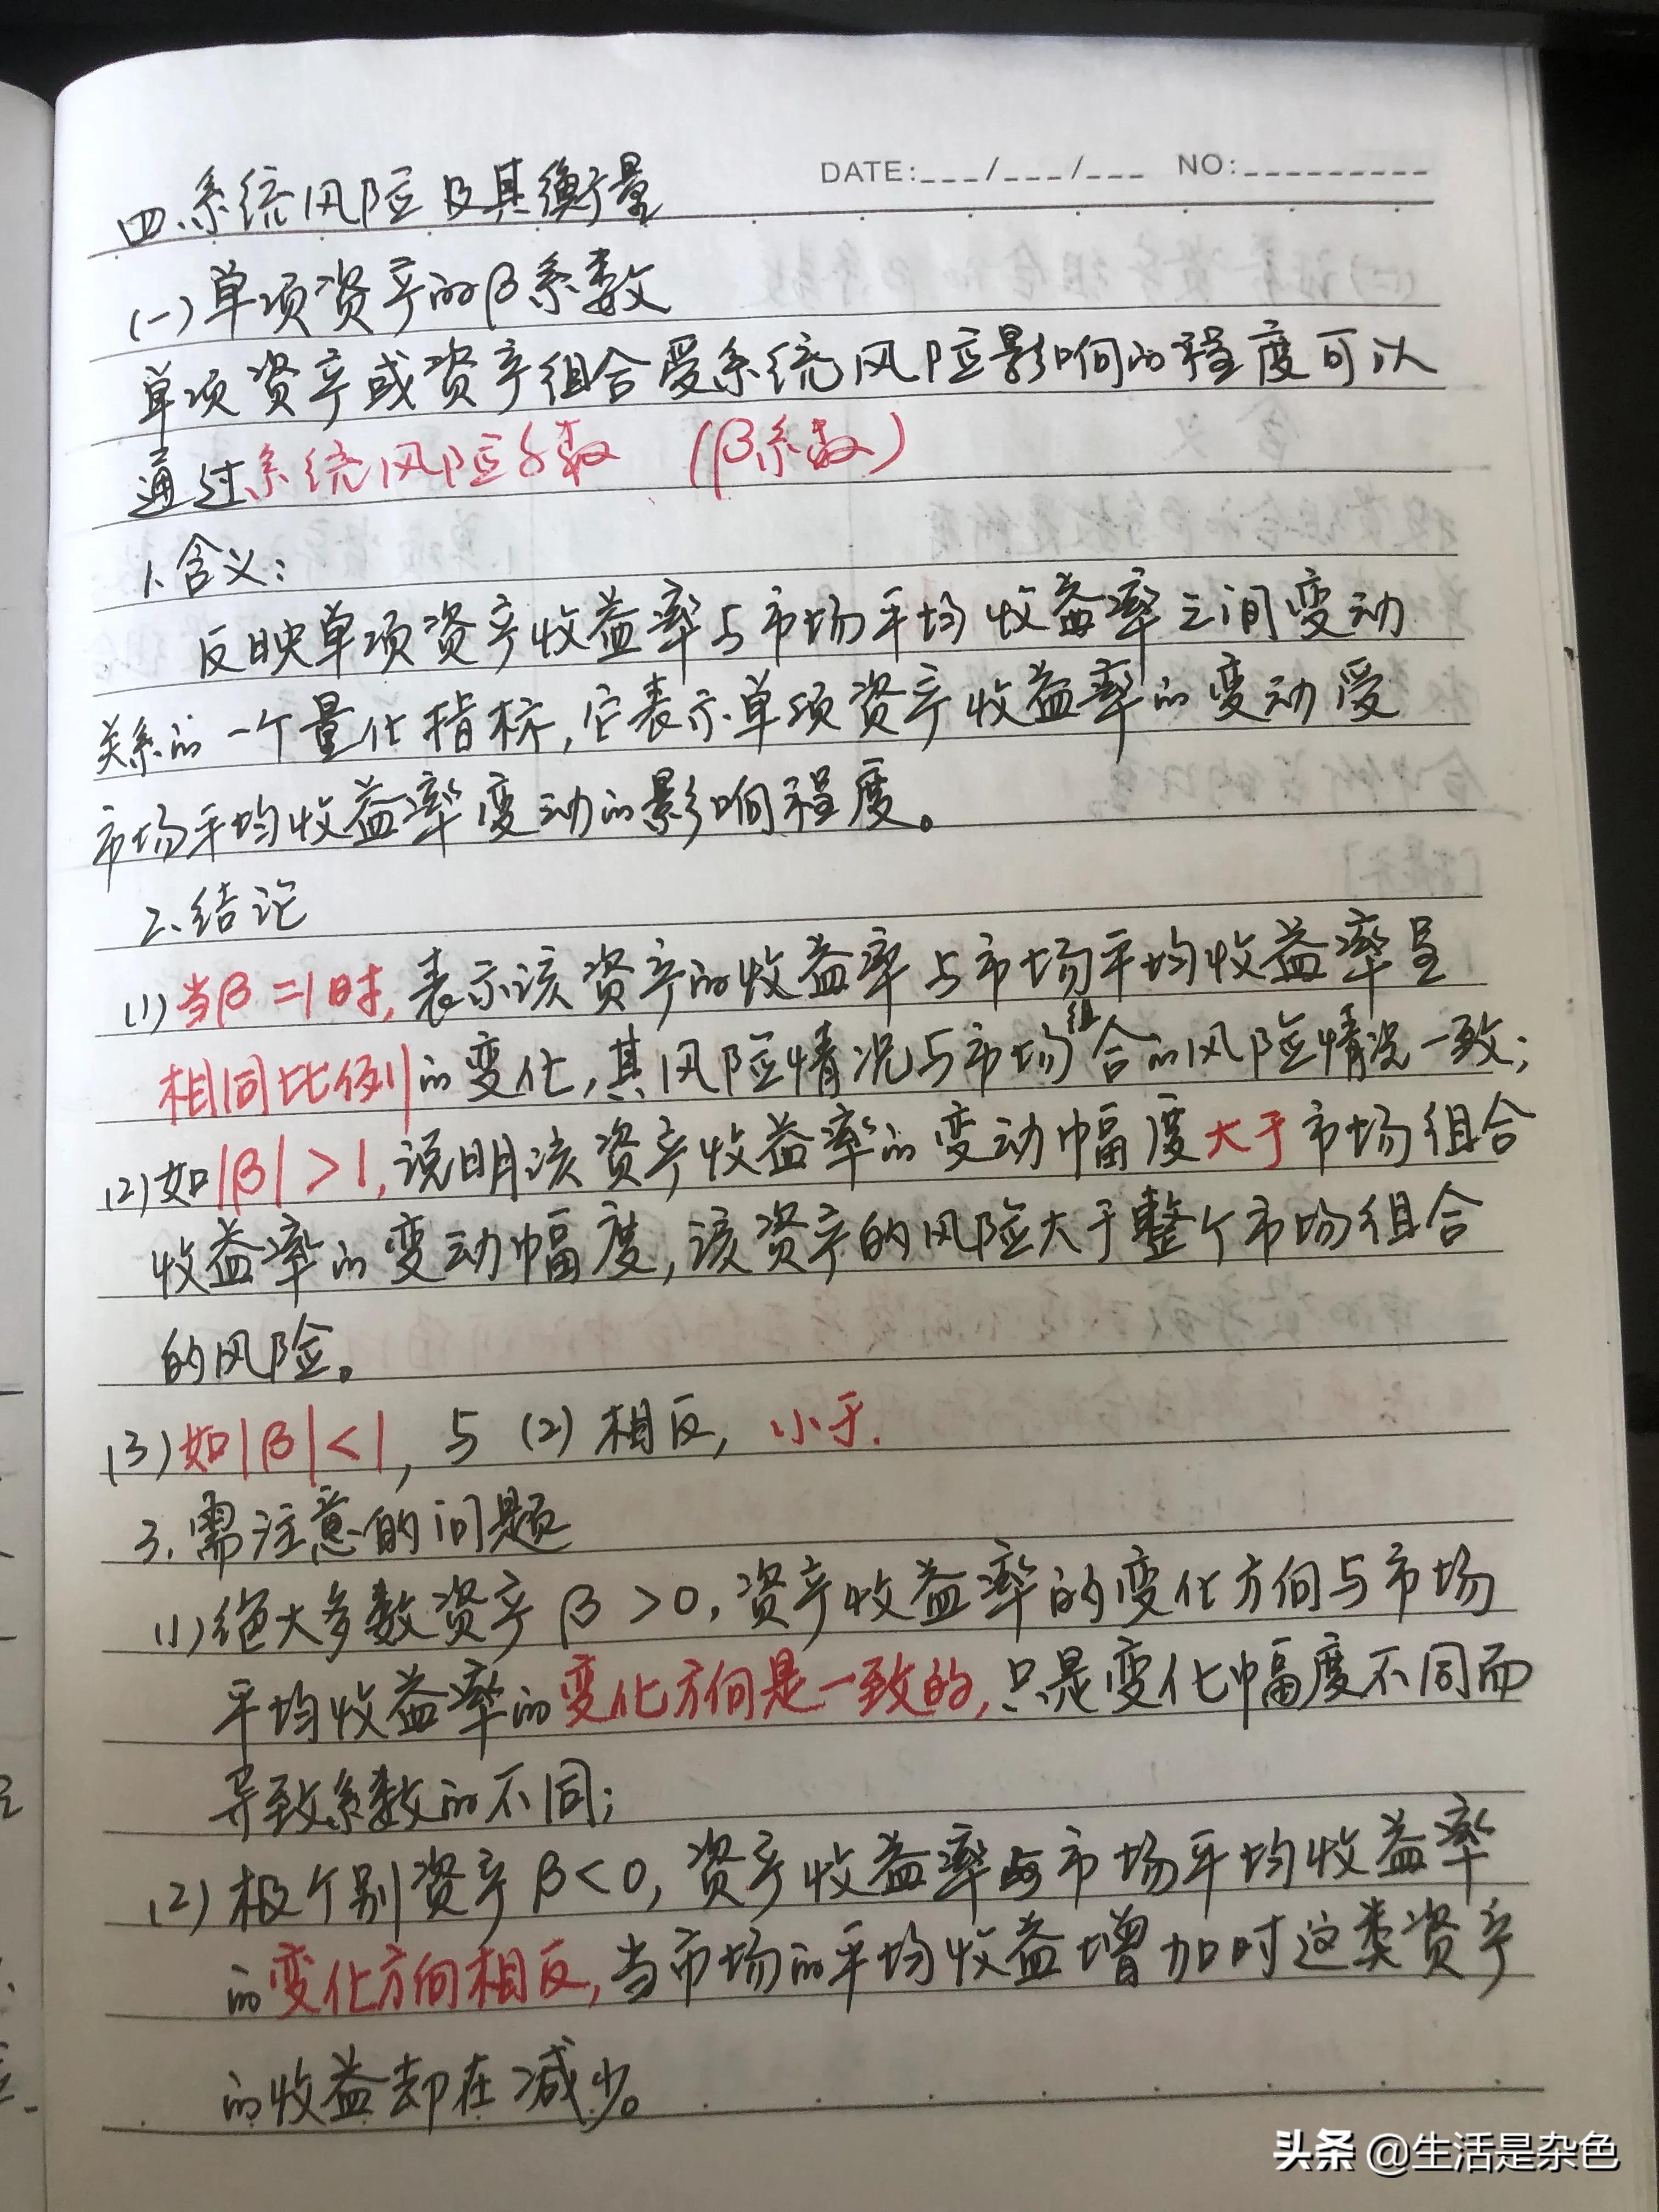 DATE:___/___/___ NO:_________
四.系统风险及其衡量
(一)单项资产的β系数
单项资产或资产组合受系统风险影响的程度可以
通过系统风险系数 (β系数)
1.含义:
反映单项资产收益率与市场平均收益率之间变动
关系的一个量化指标,它表示单项资产收益率的变动受
市场平均收益率变动的影响程度。
2.结论
(1)当β=1时,表示该资产的收益率与市场平均收益率呈
相同比例的变化,其风险情况与市场组合的风险情况一致;
(2)如|β|>1,说明该资产收益率的变动幅度大于市场组合
收益率的变动幅度,该资产的风险大于整个市场组合
的风险。
(3)如|β|<1,与(2)相反,小于.
3.需注意的问题
(1)绝大多数资产β>0,资产收益率的变化方向与市场
平均收益率的变化方向是一致的,只是变化幅度不同而
导致系数的不同;
(2)极个别资产β<0,资产收益率与市场平均收益率
的变化方向相反,当市场的平均收益增加时这类资产
的收益却在减少。
头条 @生活是杂色